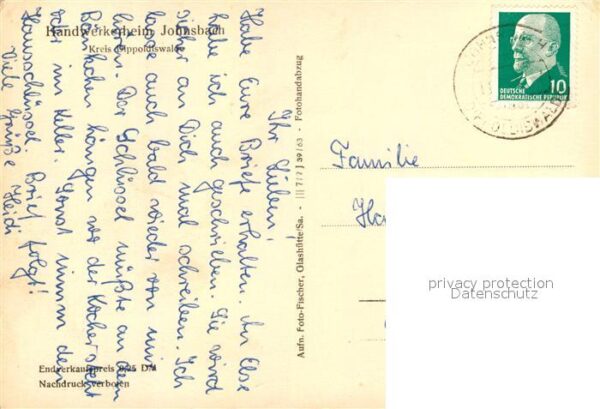 Handwerkerheim Johnsbach
Kreis Dippoldiswalde
Ihr Lieben!
Habe Eure Briefe erhalten. An Else
habe ich auch geschrieben. Sie wird
sicher an Dich mal schreiben. Ich
lasse auch bald wieder von mir
hören. Der Schlüssel müßte an dem
Bänkchen hängen wo der Kocher steht
oder im Keller. Sonst nimm den
Hausschlüssel. Brief folgt!
Viele Grüße Heidi
Endverkaufspreis 0,25 DM
Nachdruck verboten
Aufn. Foto-Fischer, Glashütte/Sa. - III 7/7 J 39/63 - Fotohandabzug
DEUTSCHE
DEMOKRATISCHE REPUBLIK
10
Familie
privacy protection
Datenschutz